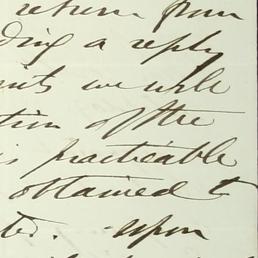 return from
ding a reply
we will
tion of the
is practicable
obtained to
ted. upon